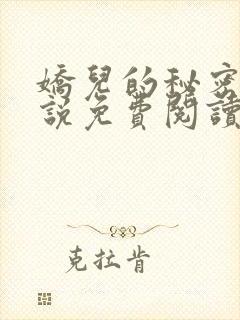 嬌兒的秘密
說免費閱讀
克拉肯